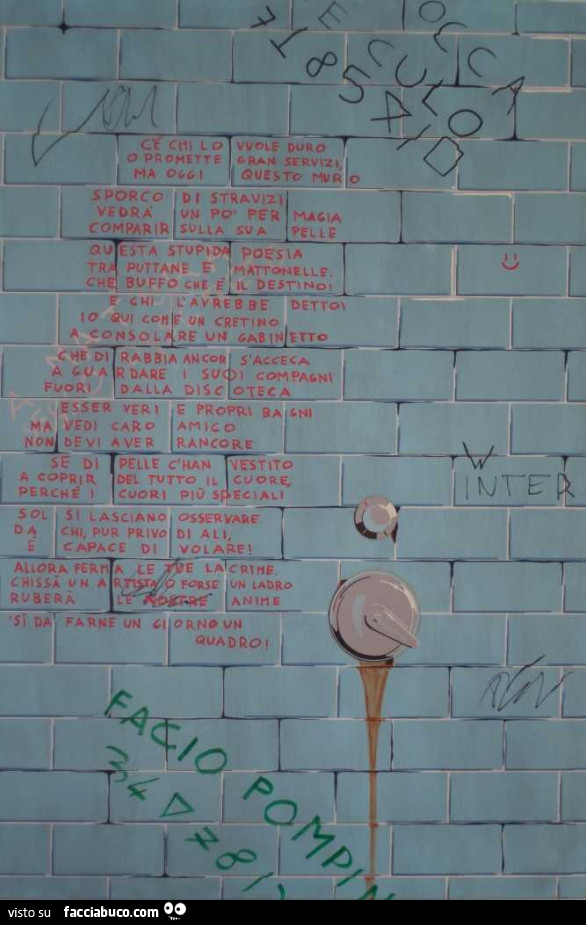 E
OCCA
71854
CULO!
C'È CHI LO VUOLE DURO
O PROMETTE GRAN SERVIZI,
MA OGGI QUESTO MURO
SPORCO DI STRAVIZI
VEDRÀ UN PO' PER MAGIA
COMPARIR SULLA SUA PELLE
QUESTA STUPIDA POESIA
TRA PUTTANE E MATTONELLE.
CHE BUFFO CHE È IL DESTINO!
E CHI L'AVREBBE DETTO!
IO QUI COME UN CRETINO
A CONSOLARE UN GABINETTO
CHE DI RABBIA ANCOR S'ACCECA
A GUARDARE I SUOI COMPAGNI
FUORI DALLA DISCOTECA
ESSER VERI E PROPRI BAGNI
MA VEDI CARO AMICO
NON DEVI AVER RANCORE
SE DI PELLE C'HAN VESTITO
A COPRIR DEL TUTTO IL CUORE,
PERCHÉ I CUORI PIÙ SPECIALI
W
INTER
SOL SI LASCIANO OSSERVARE
DA CHI, PUR PRIVO DI ALI,
È CAPACE DI VOLARE!
ALLORA FERMA LE TUE LACRIME.
CHISSÀ UN ARTISTA O FORSE UN LADRO
RUBERÀ LE NOSTRE ANIME
SÌ DA FARNE UN GIORNO UN
QUADRO!
FACIO POMPIN
visto su facciabuco.com